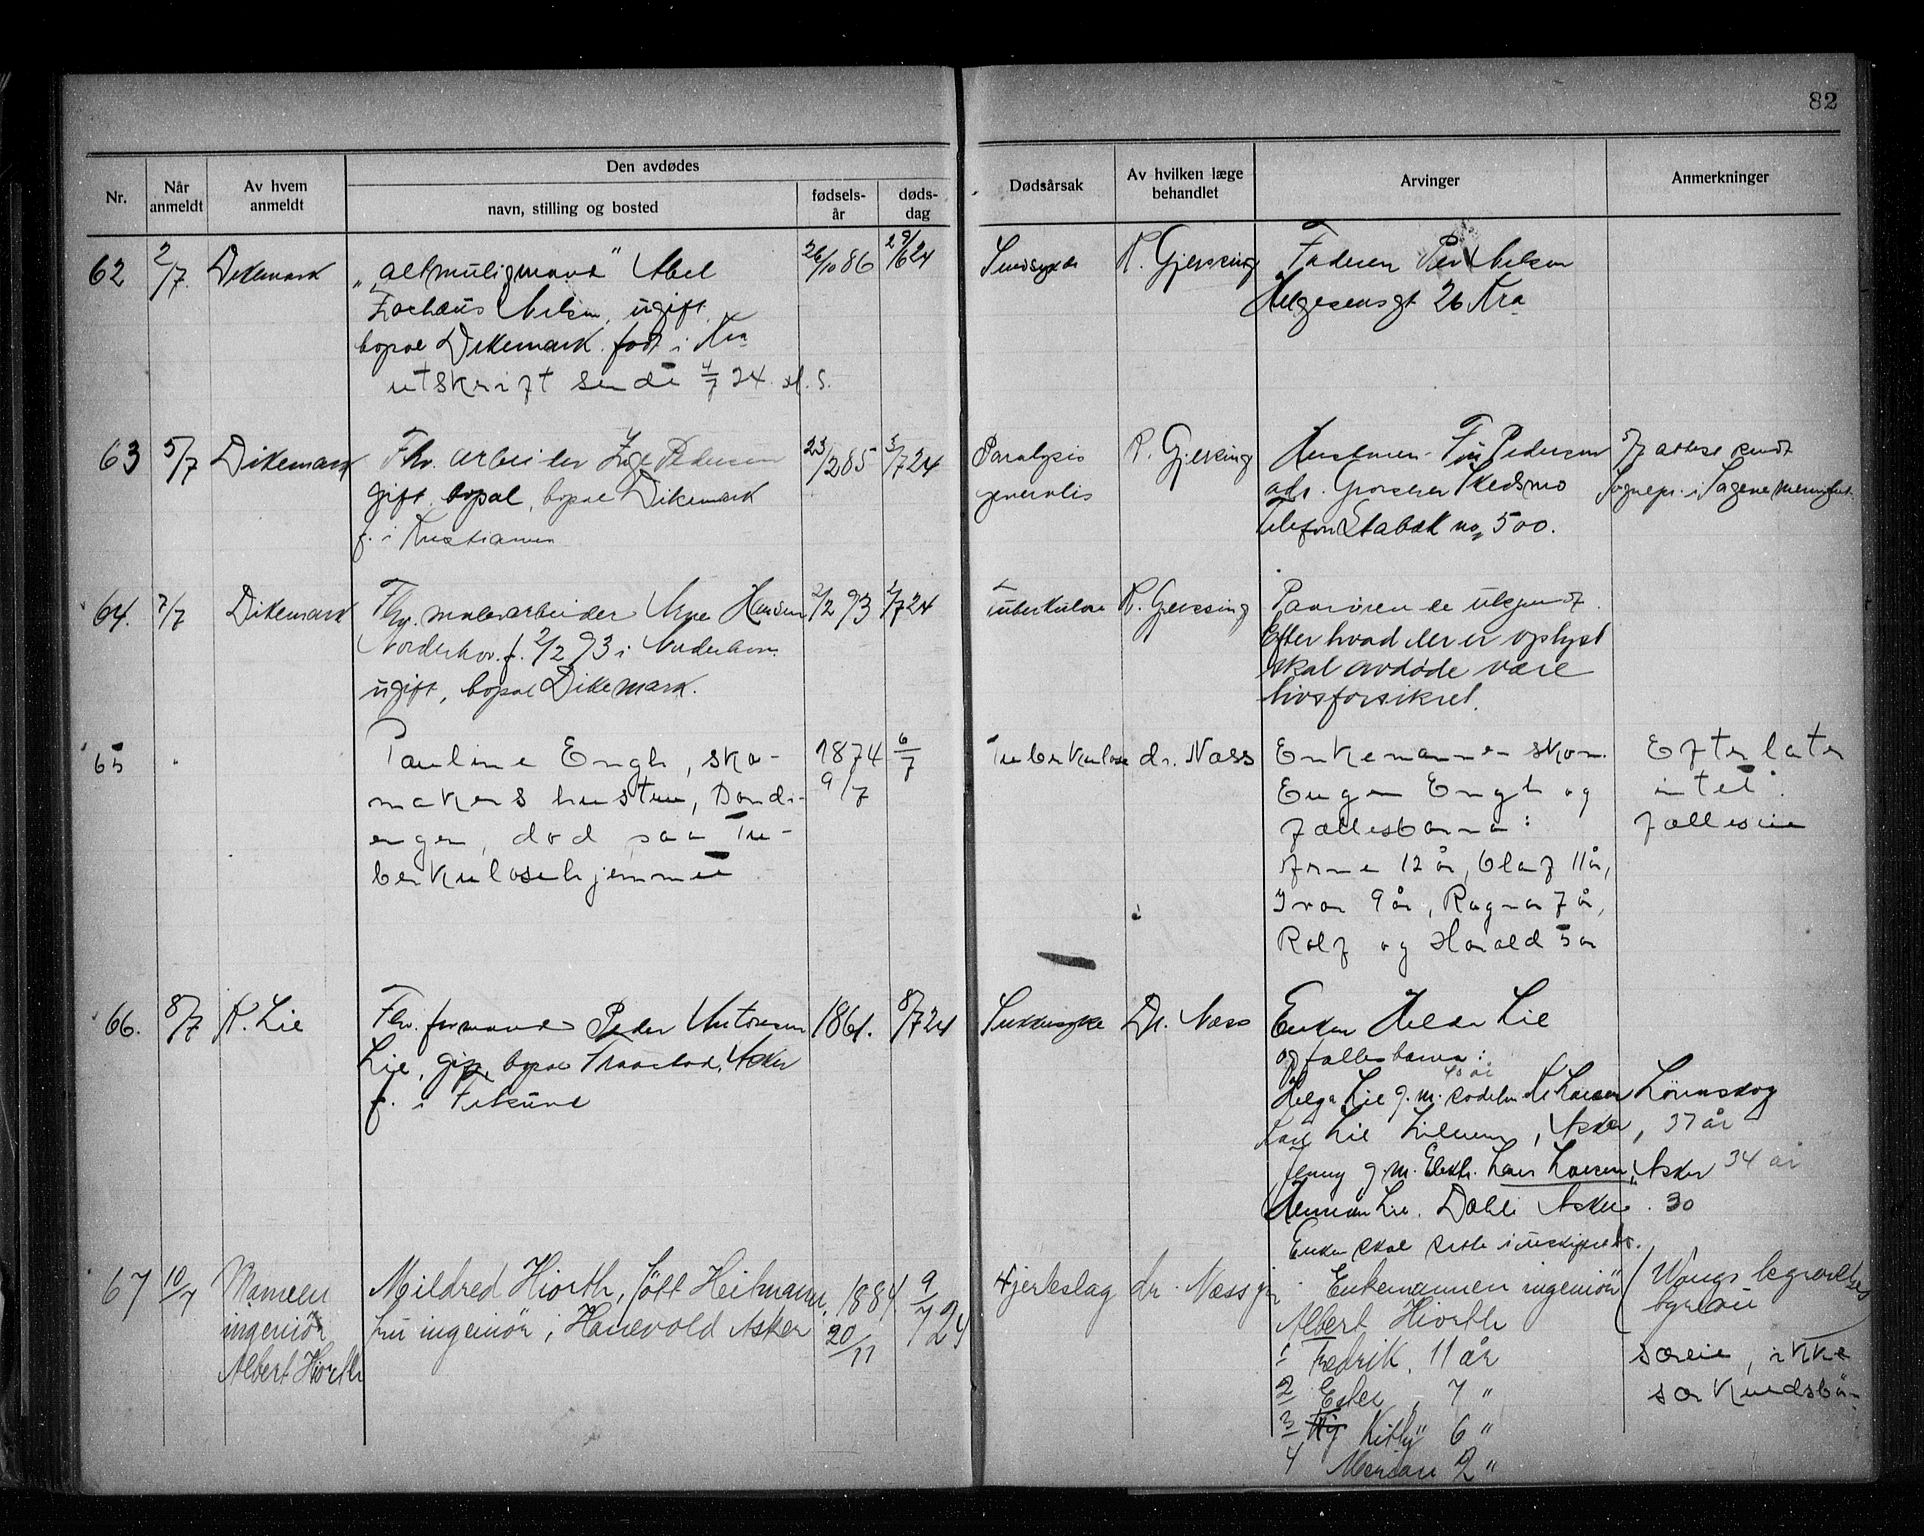 82
Nr.
Når anmeldt
Av hvem anmeldt
Den avdødes
navn, stilling og bosted
fødsels-år
døds-dag
Dødsårsak
Av hvilken læge behandlet
Arvinger
Anmerkninger
62 2/7 Dikemark „altmuligmand" Abel 26/10 86 29/6 24 Sindssyke R. Gjessing Faderen Nilsen
Nilsen, ugift, Helgesensgt 26 Kra
bopæl Dikemark. født i Kra
utskrift sendt 4/7 24.
63 5/7 Dikemark Fhv. arbeider Pedersen 23/2 85 3/7 24 Paralysis R. Gjessing Hustruen Pedersen 5/7 attest sendt
gift, bopæl, bopæl Dikemark generalis adr. Skedsmo Sognepr. i Sagene menighet
f. i Kristiania Telefon Stabæk no 500.
64. 7/7 Dikemark Fhv. malerarbeider Arne Hansen 2/2 93 2/7 24 Tuberkulose R. Gjessing Paarørende ukjendt.
Norderhov. f. 2/2 93 i Norderhov. Efter hvad der er oplyst
ugift, bopæl Dikemark. skal avdøde være
livsforsikret.
65 Pauline Engh, sko- 1874 6/7 Tuberkulose dr. Næss Enkemannen skom. Efterlater
makers hustru, 9/7 Eugen Engh og intet.
engen, død paa Tu- fællesbarna: fælleseie
berkulosehjemmet Arne 12 år, Olaf 11 år,
Ivar 9 år, Ragna 7 år,
Rolf og Harald 5 år
66. 8/7 K. Lie Fhv. formand Peder Antonsen 1861. 8/7 24 Sukkersyke Dr. Næss Enken Helda Lie
Lie, gift, bopæl Asker og fællesbarna:
f. i 40 år
Helga Lie g. m. Larsen Lørenskog
Lie , Asker, 37 år
Jenny g. m. Elektr. Lars Larsen, Asker 34 år
Herman Lie. Asker. 30
Enken skal sitte i uskiftet bo.
67 10/7 Mannen Mildred Hiorth, født Heitmann, 1884 9/7 24 Hjerteslag dr. Næss Enkemannen ingeniør Wangs begravelses
ingeniør fru ingeniør, Hanevold Asker 20/11 Albert Hiorth byrå
Albert Hiorth 1 Fredrik, 11 år særeie, ikke
2 Ester, 7 " særkuldsbarn
3 Kitty " 6 "
4 2 "